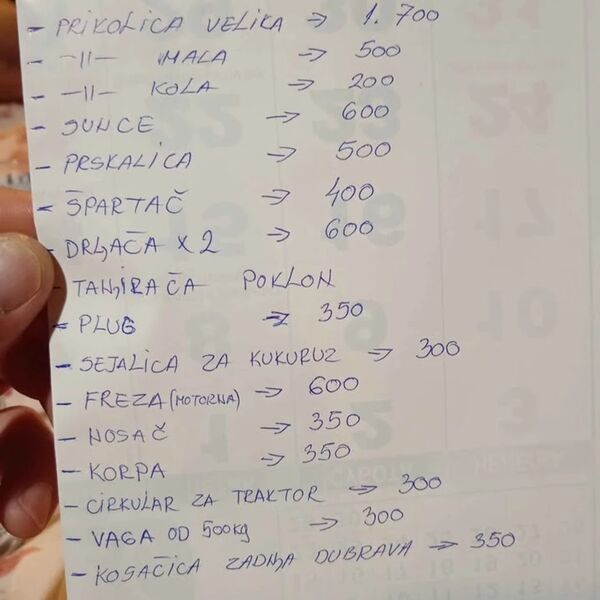 - PRIKOLICA VELIKA → 1.700
- -||- MALA → 500
- -||- KOLA → 200
- SUNCE → 600
- PRSKALICA → 500
- ŠPARTAČ → 400
- DRЉAČA X 2 → 600
- TANJIRAČA POKLON
- PLUG → 350
- SEJALICA ZA KUKURUZ → 300
- FREZA (MOTORNA) → 600
- NOSAČ → 350
- KORPA → 350
- CIRKULAR ZA TRAKTOR → 300
- VAGA OD 500kg → 300
- KOSAČICA ZADNJA DUBRAVA → 350